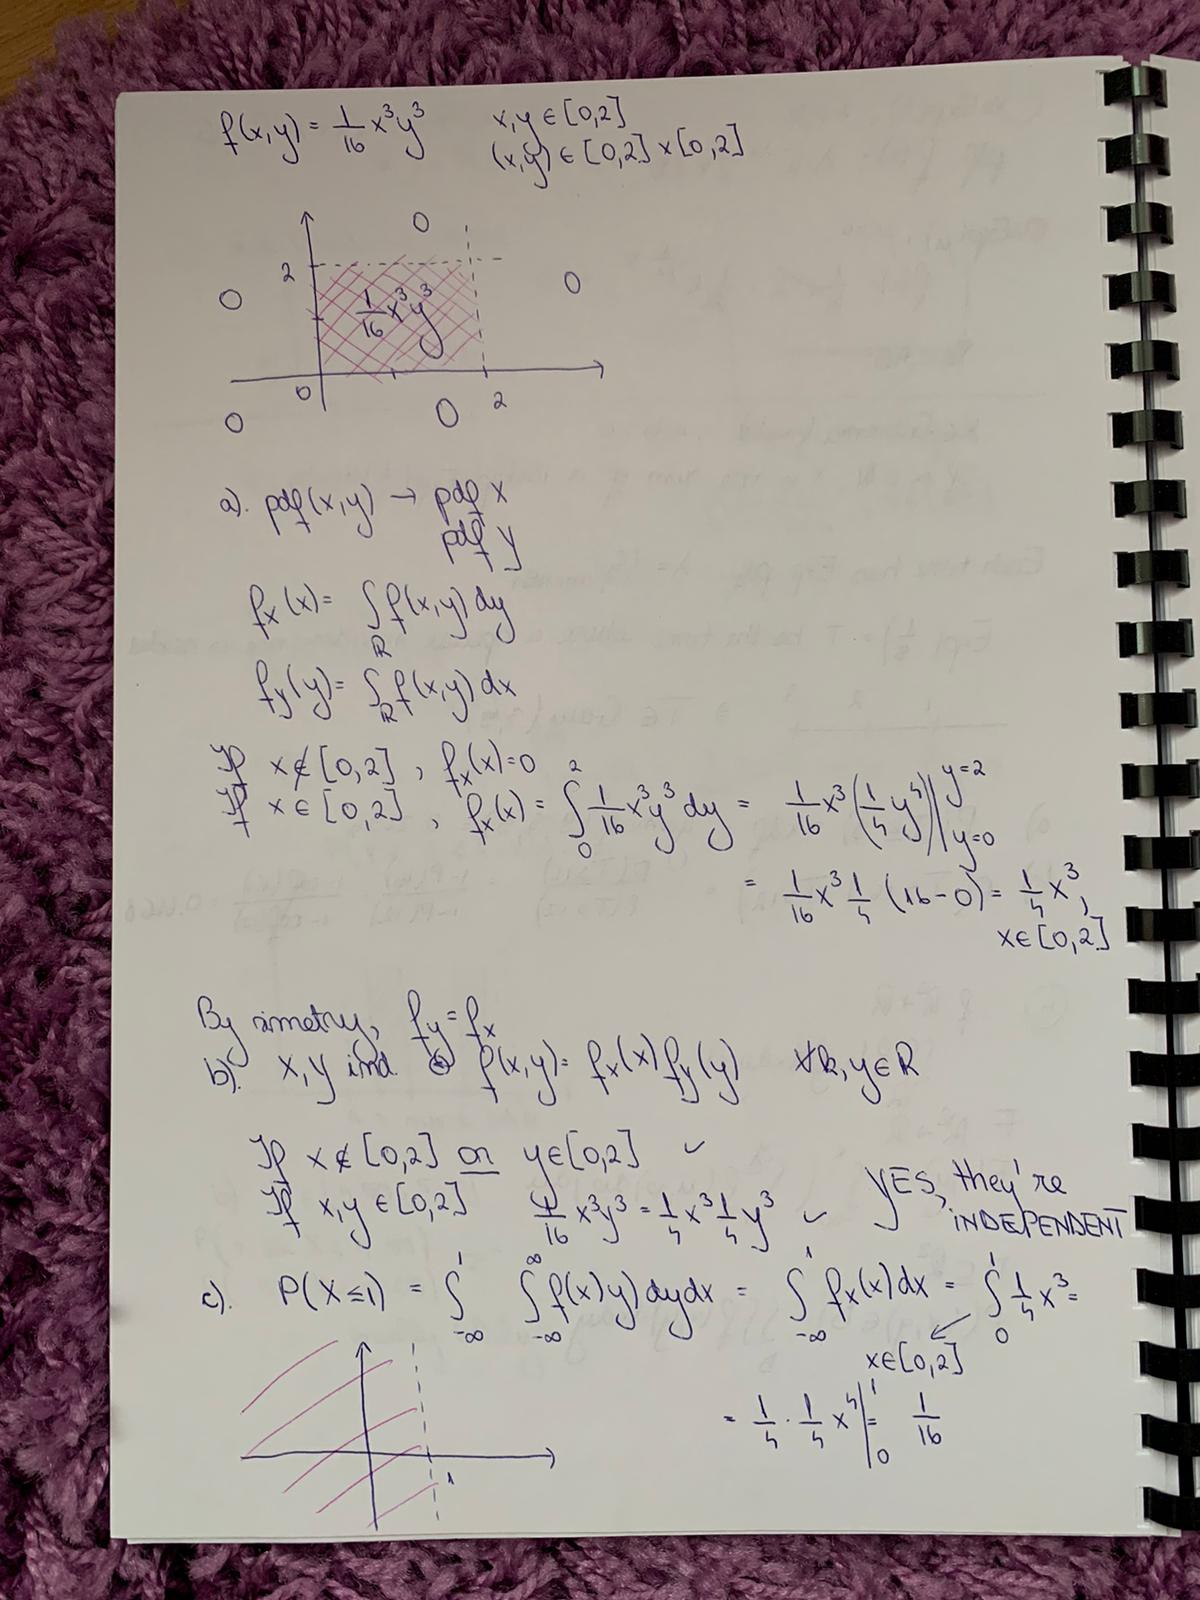 f(x,y) = 1/16 x³y³    x,y ∈ [0,2]
(x,y) ∈ [0,2] x [0,2]
0
2
0    1/16 x³y³    0
0
0    0    2
a). pdf(x,y) → pdf X
pdf Y
fx(x) = ∫ℝ f(x,y) dy
fy(y) = ∫ℝ f(x,y) dx
If x ∉ [0,2], fx(x) = 0
If x ∈ [0,2], fx(x) = ∫₀² 1/16 x³y³ dy = 1/16 x³ (1/4 y⁴) | y=2 y=0
= 1/16 x³ 1/4 (16-0) = 1/4 x³,
x ∈ [0,2]
By simetry, fy = fx
b). X, Y ind ⇔ f(x,y) = fx(x) fy(y)    ∀x, y ∈ R
If x ∉ [0,2] or y ∈ [0,2] ✓
If x,y ∈ [0,2]    1/16 x³y³ = 1/4 x³ 1/4 y³ ✓    YES, they're
INDEPENDENT
c). P(X ≤ 1) = ∫₋∞¹ ∫₋∞^∞ f(x,y) dydx = ∫₋∞¹ fx(x) dx = ∫₀¹ 1/4 x³ =
x ∈ [0,2]
= 1/4 · 1/4 x⁴ |₀¹ = 1/16
1